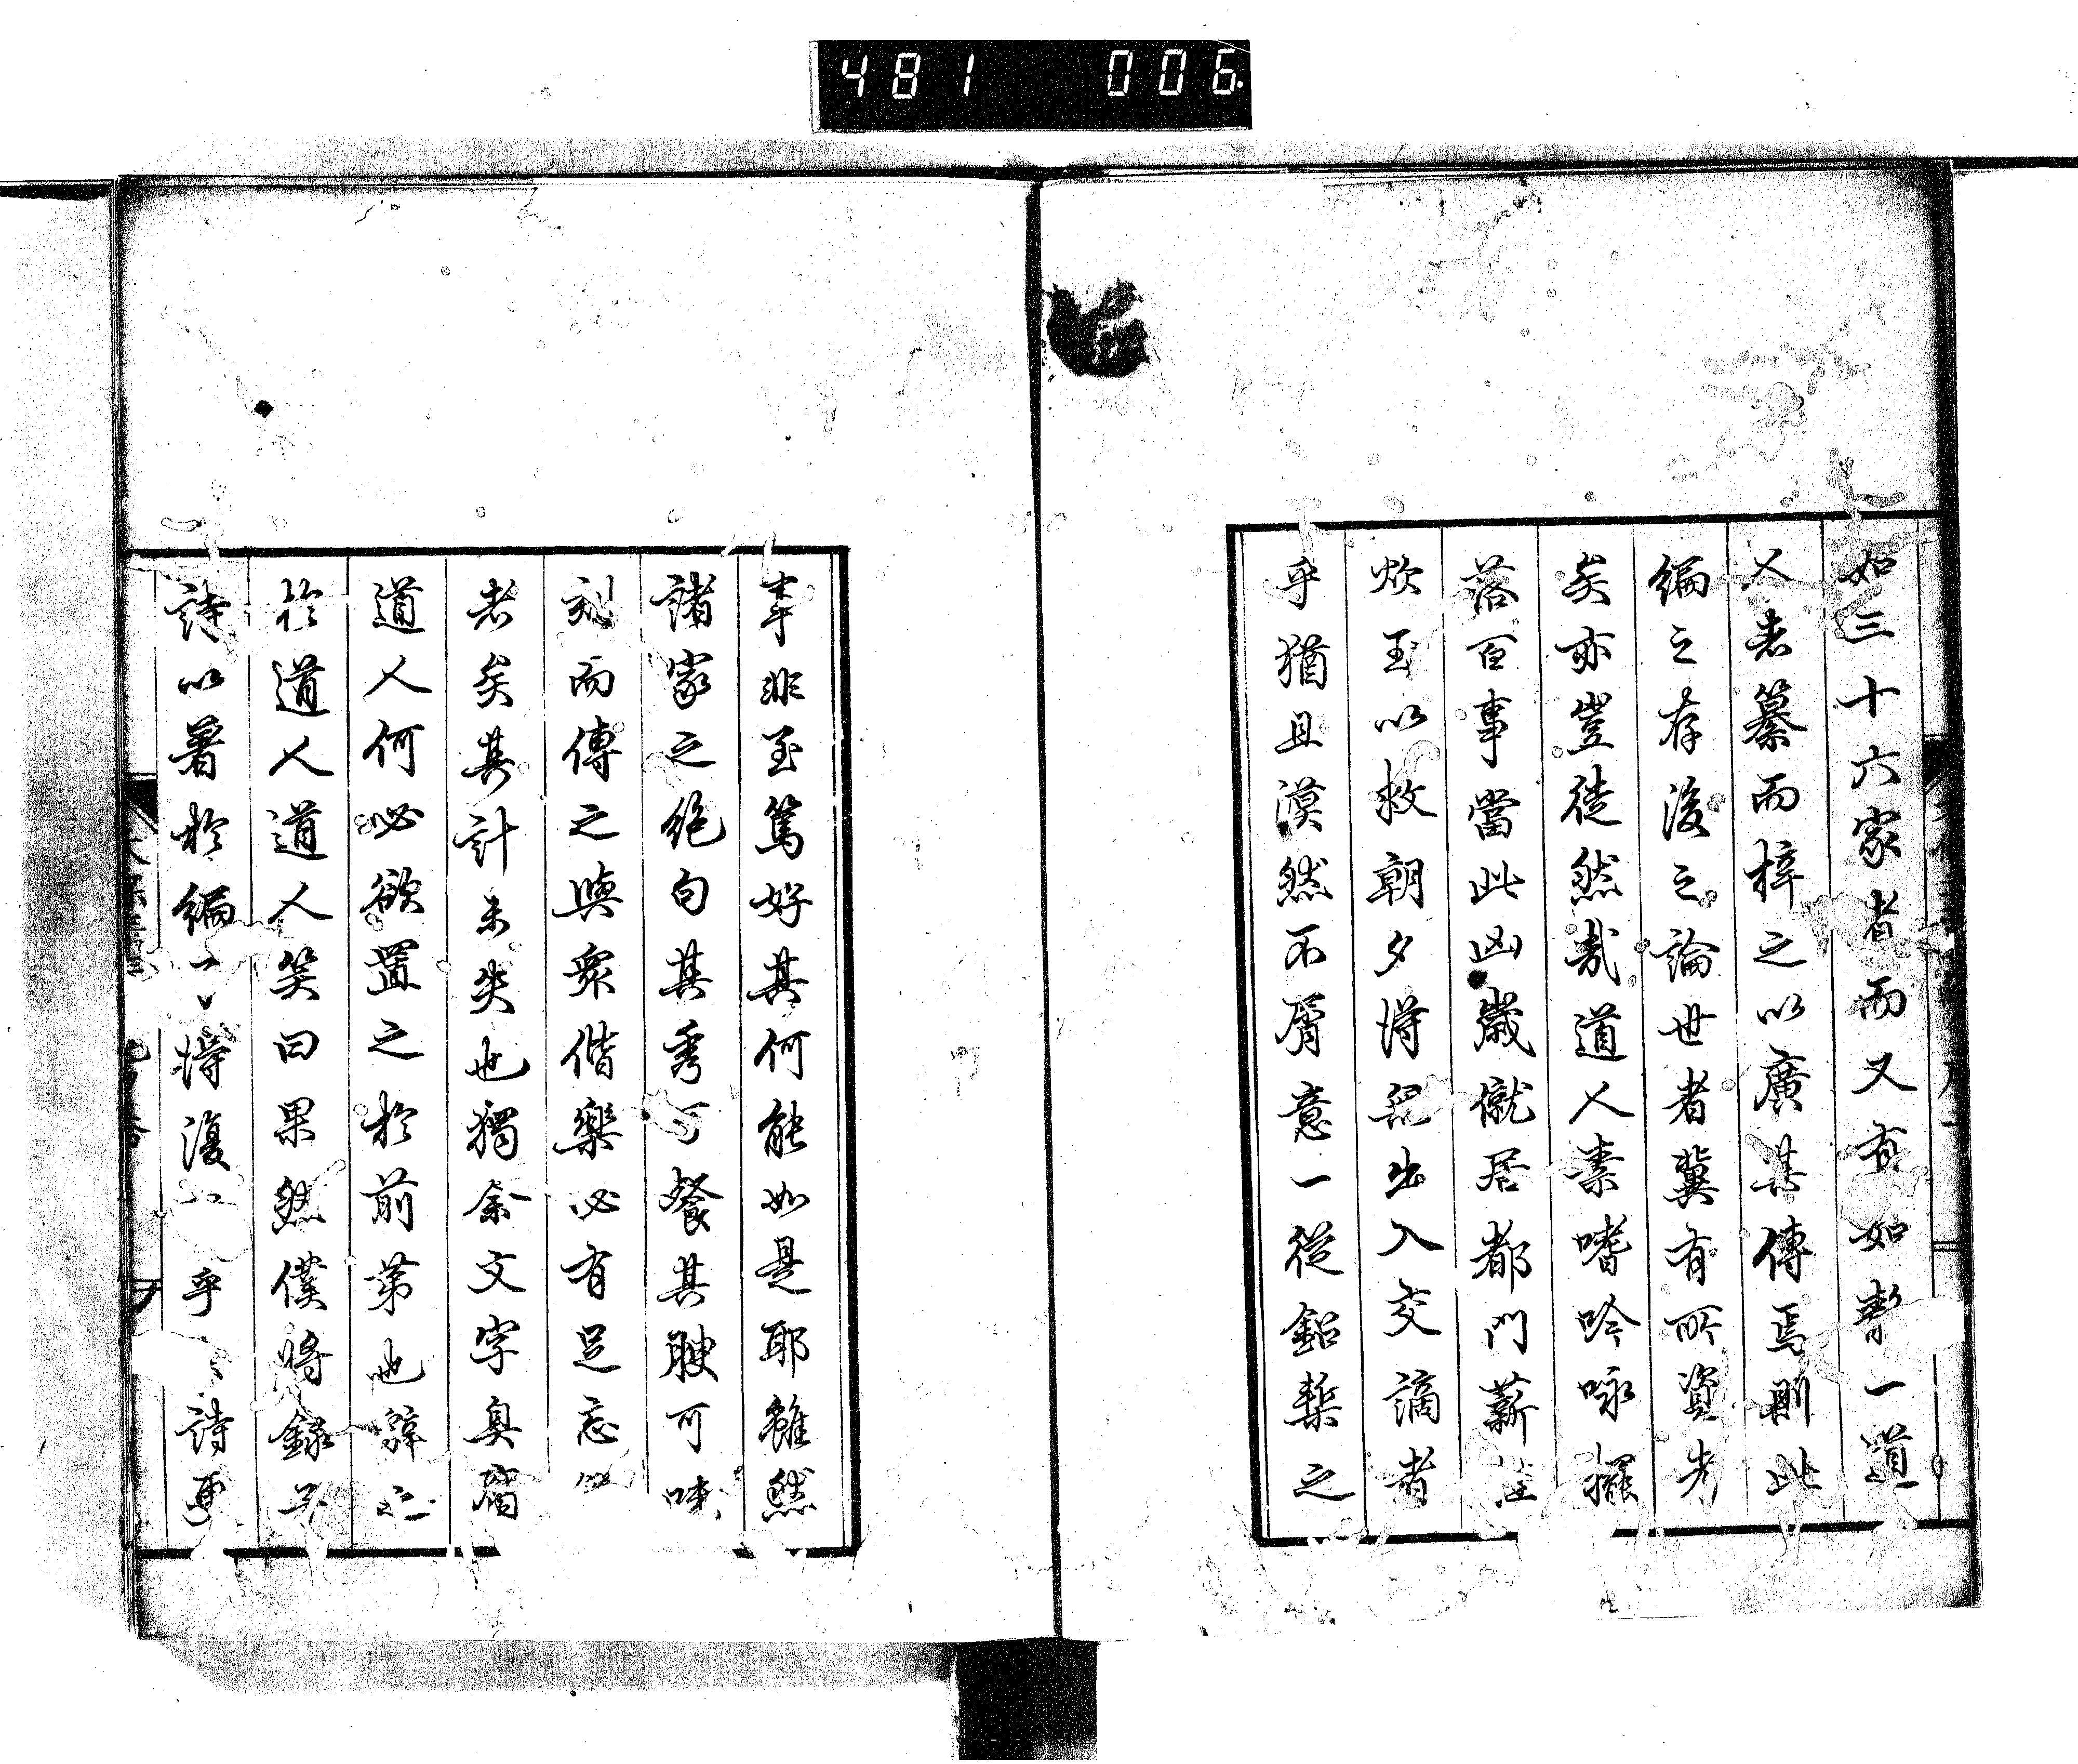 481 006
如三十六家者而又有如暫一道
人者纂而梓之以廣其傳焉則此
編之存後之論世者冀有所資考
矣亦豈徒然哉道人素嗜吟咏擺
落百事當此凶歲僦居都門薪
炊玉以救朝夕得 出入交謫者
乎猶且漠然不屑意一從鉛槧之
事非至篤好其何能如是耶雖然
諸家之絕句其秀可餐其腴可味
刻而傳之與衆偕樂必有足忘
者矣其計未失也獨余文字臭腐
道人何必欲置之於前茅也辭之
於道人道人笑曰果然僕將錄子
詩以署於編 得復 乎 詩更